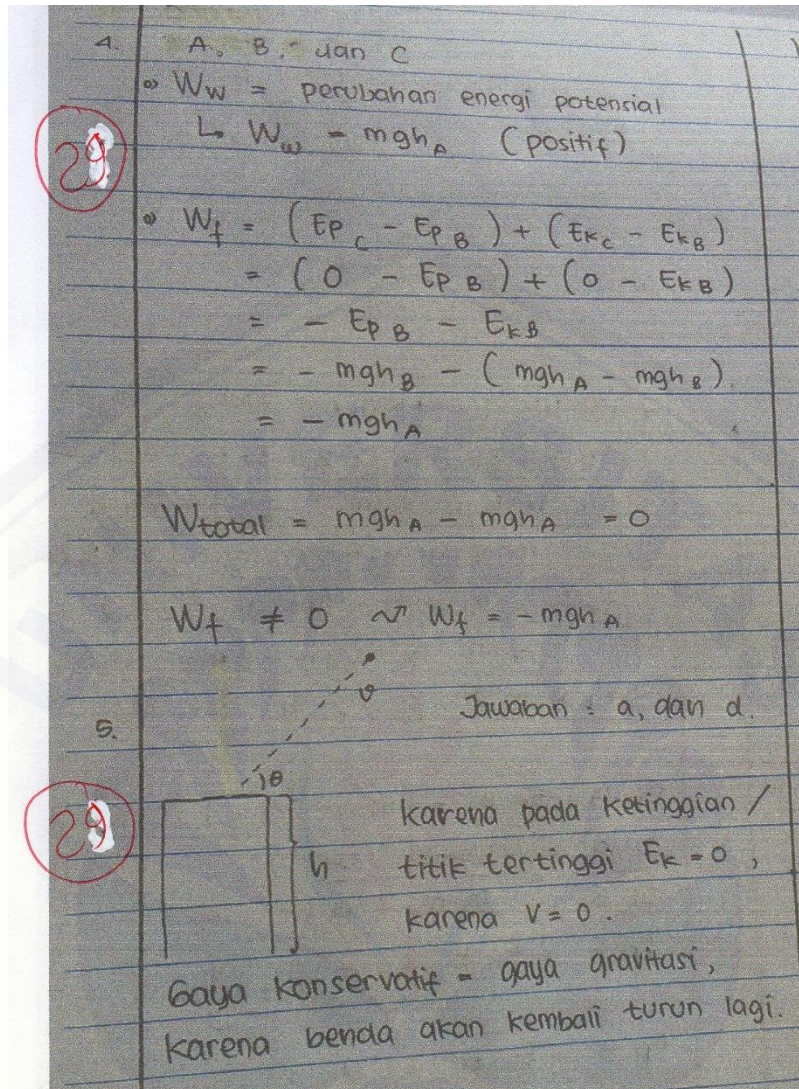 4. A, B, dan C
⇒ Ww = perubahan energi potensial
↳ Ww = mghA (positif)
29
⇒ Wf = (EpC - EpB) + (EkC - EkB)
= (0 - EpB) + (0 - EkB)
= - EpB - EkB
= - mghB - (mghA - mghB)
= - mghA
Wtotal = mghA - mghA = 0
Wf ≠ 0 ↝ Wf = - mghA
5. v Jawaban : a, dan d.
θ
29
h
karena pada ketinggian /
titik tertinggi Ek = 0,
karena V = 0.
Gaya konservatif = gaya gravitasi,
karena benda akan kembali turun lagi.